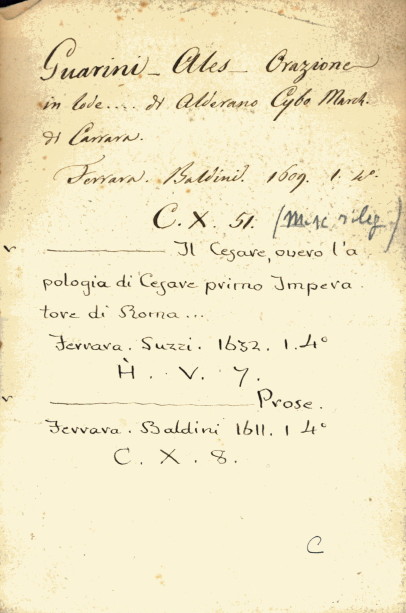 Guarini _ Ales _ Orazione
in lode.... di Alderano Cybo March.
di Carrara.
Ferrara. Baldini. 1609. 1. 4°
C. X. 51. (Misc rileg.)
v ——— Il Cesare, overo l'a
pologia di Cesare primo Impera
tore di Roma...
Ferrara. Suzzi. 1632. 1. 4°
H. V. 7.
v ——— Prose.
Ferrara. Baldini 1611. 1 4°
C. X. 8.
C